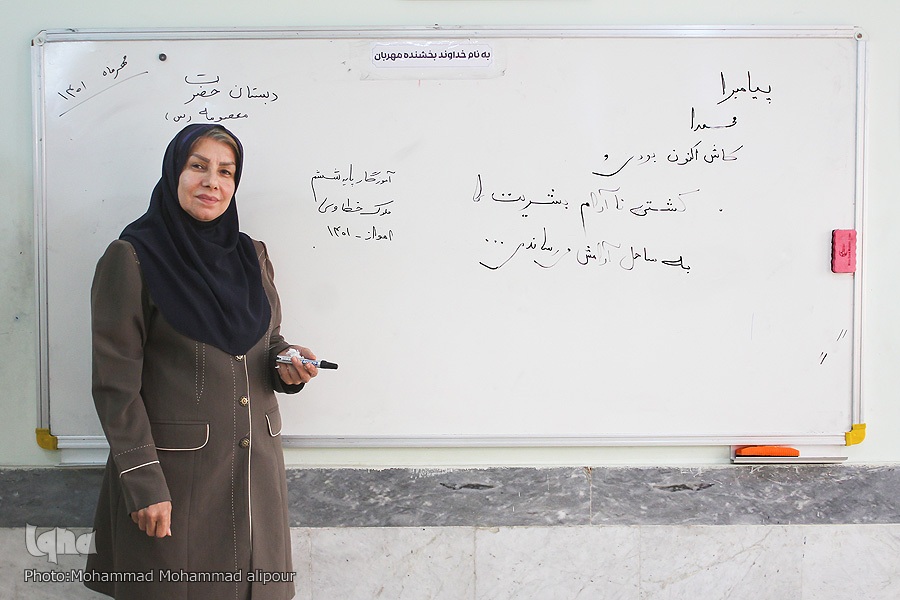 به نام خداوند بخشنده مهربان
مهرماه ۱۴۰۱
دبستان حضرت
معصومه (س)
آموزگار پایه ششم
ملوک خطاوی
اهواز - ۱۴۰۱
پیامبرا
محمدا
کاش اکنون بودی و
کشتی ناآرام بشریت را
به ساحل آرامش می رساندی ...
iqna
Photo:Mohammad Mohammad alipour